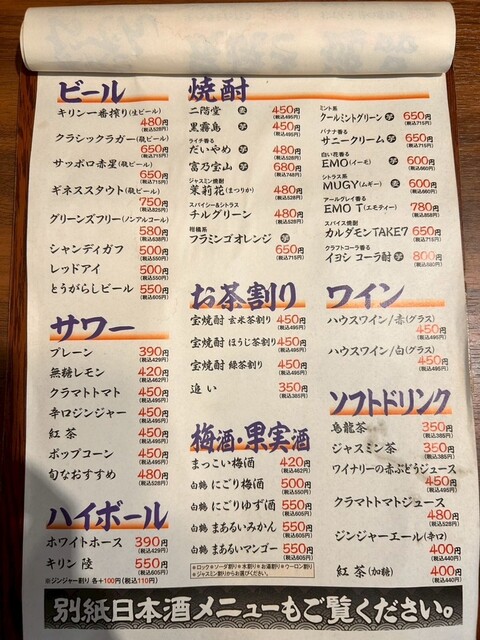 ビール
キリン一番搾り(生ビール)
480円
(税込528円)
クラシックラガー(瓶ビール)
650円
(税込715円)
サッポロ赤星(瓶ビール)
650円
(税込715円)
ギネススタウト(瓶ビール)
750円
(税込825円)
グリーンズフリー(ノンアルコール)
580円
(税込638円)
シャンディガフ 500円
(税込550円)
レッドアイ 500円
(税込550円)
とうがらしビール 550円
(税込605円)
サワー
プレーン 390円
(税込429円)
無糖レモン 420円
(税込462円)
クラマトトマト 450円
(税込495円)
辛口ジンジャー 450円
(税込495円)
紅茶 450円
(税込495円)
ポップコーン 450円
(税込495円)
旬なおすすめ 480円
(税込528円)
ハイボール
ホワイトホース 390円
(税込429円)
キリン 陸 550円
(税込605円)
※ジンジャー割り 各+100円(税込110円)
焼酎
二階堂 麦 450円
(税込495円)
黒霧島 芋 450円
(税込495円)
ライチ香る
だいやめ 芋 480円
(税込528円)
富乃宝山 芋 680円
(税込748円)
ジャスミン焼酎
茉莉花(まつりか) 480円
(税込528円)
スパイシー&シトラス
チルグリーン 480円
(税込528円)
柑橘系
フラミンゴオレンジ 芋
650円
(税込715円)
ミント系
クールミントグリーン 芋 650円
(税込715円)
バナナ香る
サニークリーム 芋 650円
(税込715円)
白い花香る
EMO(イーモ) 芋 600円
(税込660円)
シトラス系
MUGY(ムギー) 麦 600円
(税込660円)
アールグレイ香る
EMO T(エモティー) 780円
(税込858円)
スパイス焼酎
カルダモンTAKE7 650円
(税込715円)
クラフトコーラ香る
イヨシ コーラ酎 芋 800円
(税込880円)
お茶割り
宝焼酎 玄米茶割り 450円
(税込495円)
宝焼酎 ほうじ茶割り 450円
(税込495円)
宝焼酎 緑茶割り 450円
(税込495円)
追い 350円
(税込385円)
梅酒・果実酒
まっこい梅酒 420円
(税込462円)
白鶴 にごり梅酒 500円
(税込550円)
白鶴 にごりゆず酒 550円
(税込605円)
白鶴 まあるいみかん 550円
(税込605円)
白鶴 まあるいマンゴー 550円
(税込605円)
※ロック※ソーダ割り※水割り※お湯割り※ウーロン割り
※ジャスミン割りからお選びください。
ワイン
ハウスワイン/赤(グラス)
450円
(税込495円)
ハウスワイン/白(グラス)
450円
(税込495円)
ソフトドリンク
烏龍茶 350円
(税込385円)
ジャスミン茶 350円
(税込385円)
ワイナリーの赤ぶどうジュース
450円
(税込495円)
クラマトトマトジュース
480円
(税込528円)
ジンジャーエール(辛口)
400円
(税込440円)
紅茶(加糖) 400円
(税込440円)
別紙日本酒メニューもご覧ください。